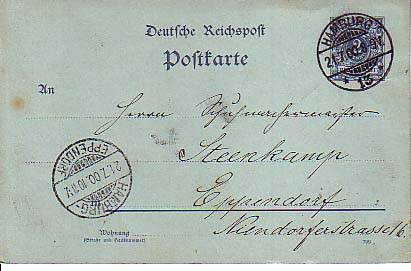 Deutsche Reichspost
Postkarte
HAMBURG
21.7.00. 8-9V
* 13 *
An
Herrn Schuhmachermeister
Steenkamp
Eppendorf
HAMBURG
21.7.00.10-11V
EPPENDORF
Wohnung
(Straße und Hausnummer)